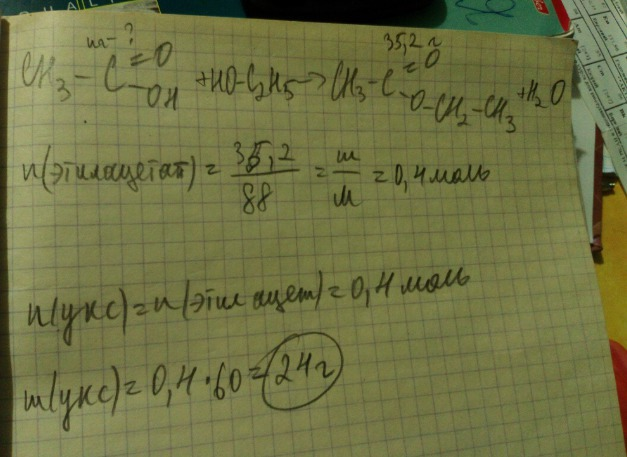 m-?
35,2 г
CH₃-C=O
OH
+HO-C₂H₅→CH₃-C=O
O-CH₂-CH₃+H₂O
n(этилацетат)=35,2/88=m/M=0,4 моль
n(укс)=n(этилацет)=0,4 моль
m(укс)=0,4·60=24г